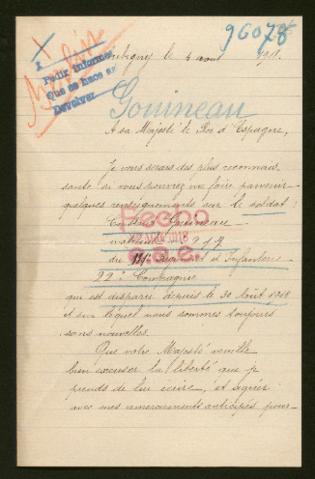 96078
1
Pedir informe
Que se hace en
Devolver
Berlin
le 4 août 191
Gouineau
A sa Majesté le Roi d'Espagne,
Je vous serais des plus reconnais
sante si vous pourrez me faire parvenir
quelques renseignements sur le soldat:
Gouineau
Hecho
matricule 217
du Régiment d'Infanterie
22e Compagnie
qui est disparu depuis le 30 Août
et sur lequel nous sommes toujours
sans nouvelles.
Que votre Majesté veuille
bien excuser la liberté que je
prends de lui écrire, et agréer
avec mes remerciements anticipés, pour